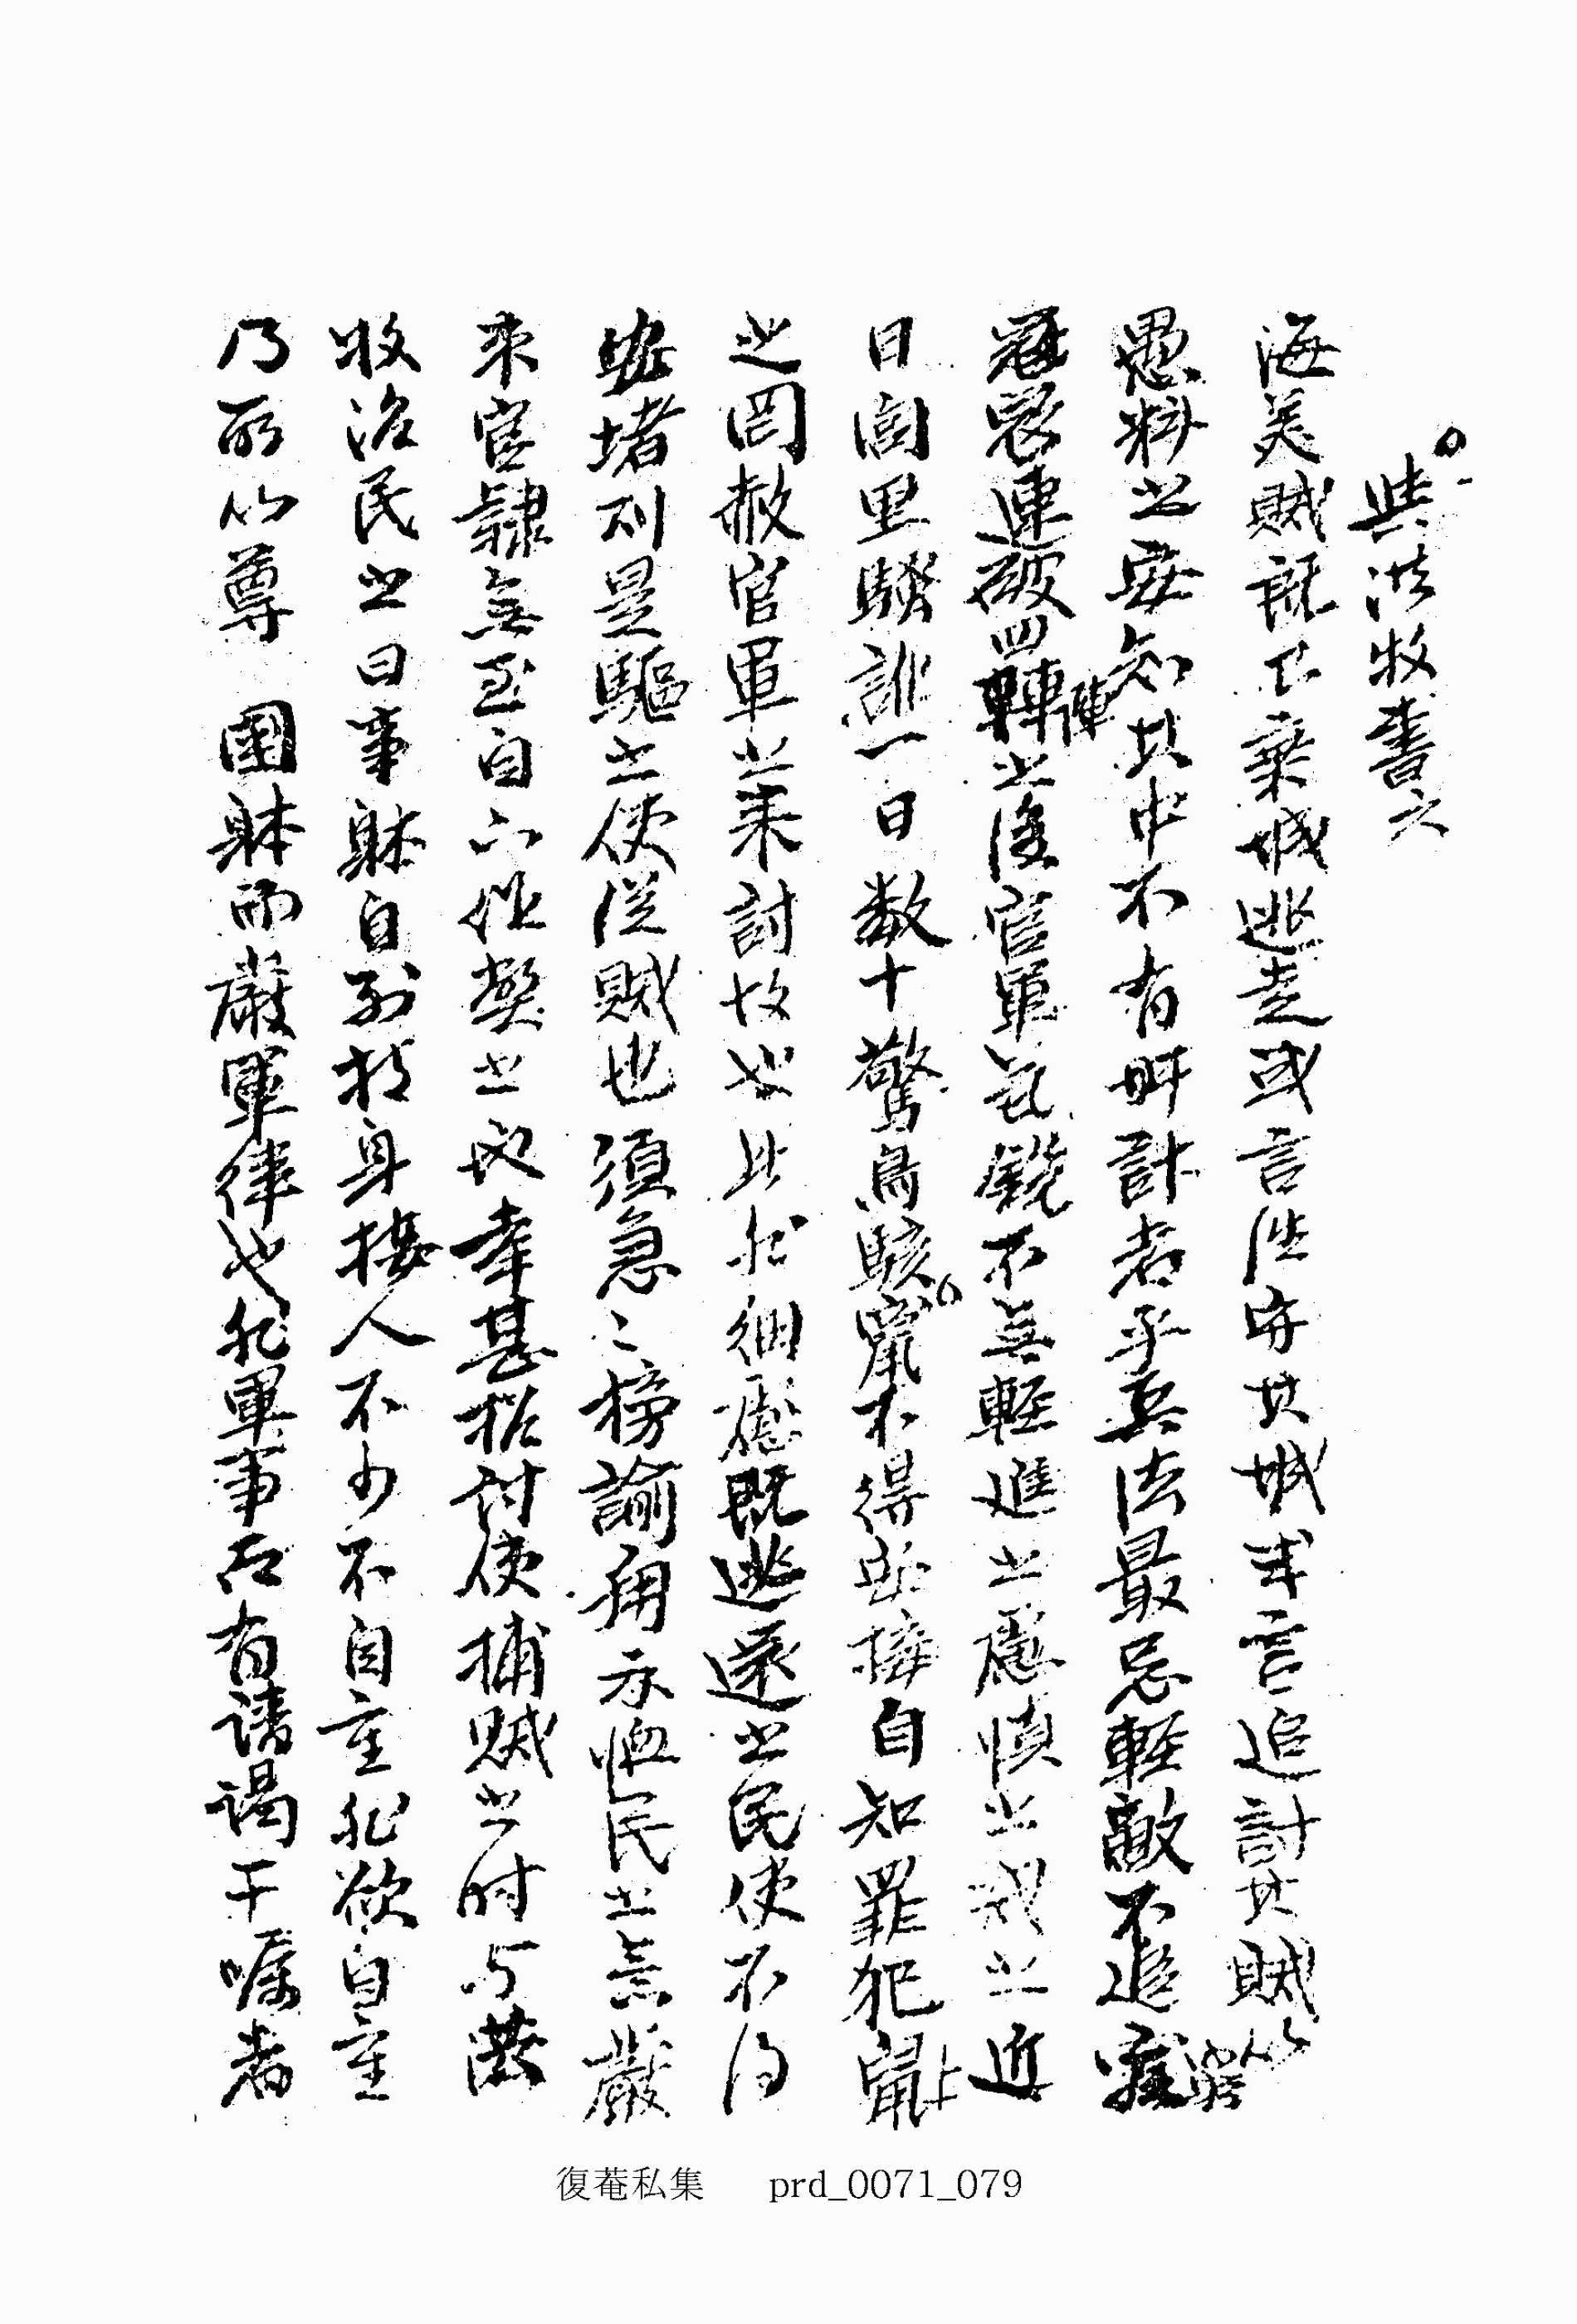 與洪牧書六
海美賊旣已棄城逃走或言往守其城或言追討其賊以
愚料之安知其中不有奸計者乎兵法最忌輕敵不追窮
寇窮
寇況連破四轉之後官軍氣銳不無輕進之慮愼之戒之近
陣
日閭里騷訛一日數十驚鳥駭竄不得安接自知罪犯竄上
之罔赦官軍之來討故也此外徊惑旣逃還之民使不得
安堵則是驅之使從賊也須急〻榜諭猶示恤民之意嚴
束官隷無至白 作獘之地幸甚抵討使捕賊之時与
牧治民之日事躰自別持身接人不少不自重非欲自重
乃所以尊 國躰而嚴軍律也非軍事而有請謁干囑者
復菴私集 prd_0071_079